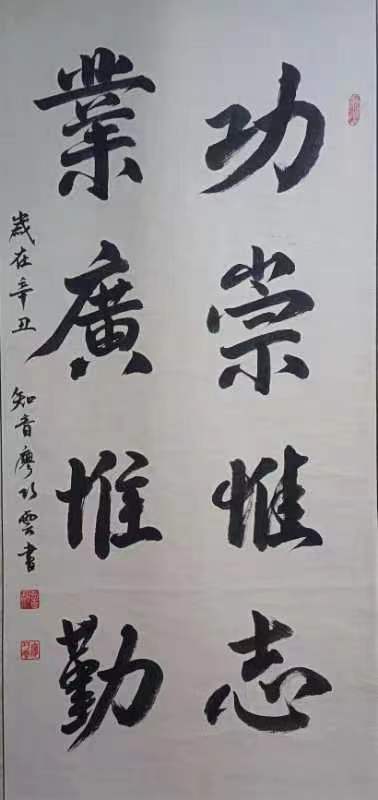 功崇惟志
業廣惟勤
歲在辛丑 知音廖巧雲書